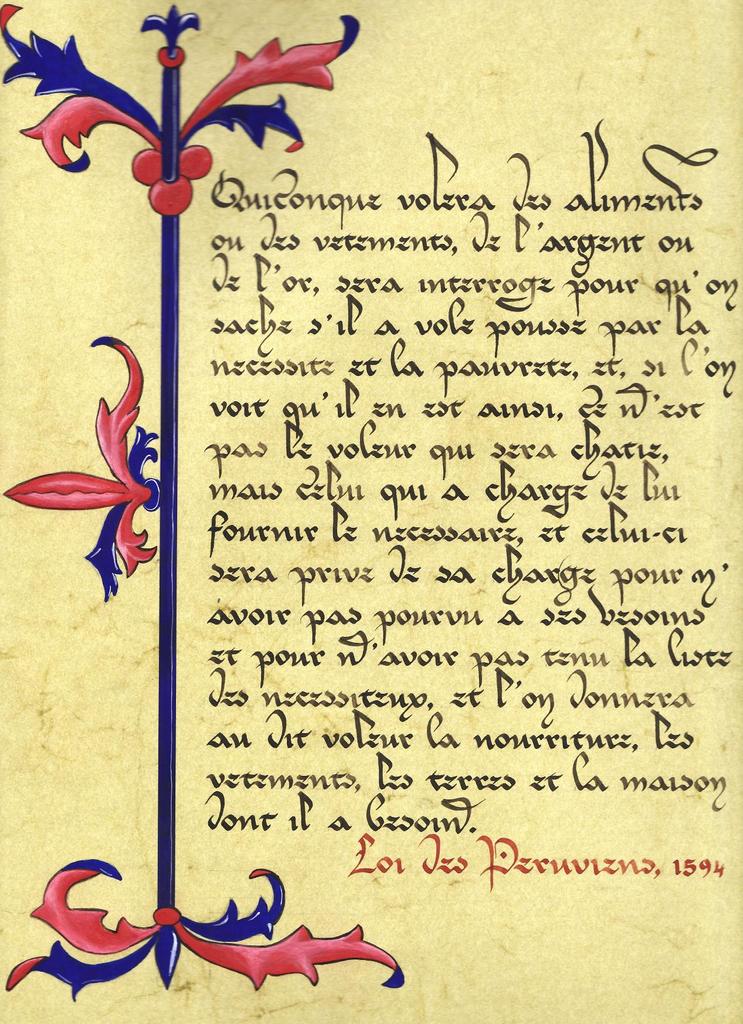 Quiconque volera des aliments
ou des vetements, de l'argent ou
de l'or, sera interroge pour qu'on
sache s'il a vole pousse par la
necessite et la pauvrete, et, si l'on
voit qu'il en est ainsi, ce n'est
pas le voleur qui sera chatie,
mais celui qui a charge de lui
fournir le necessaire, et celui-ci
sera prive de sa charge pour n'
avoir pas pourvu a ses besoins
et pour n'avoir pas tenu la liste
des necessiteux, et l'on donnera
au dit voleur la nourriture, les
vetements, les terres et la maison
dont il a besoin.
Loi des Peruviens, 1594